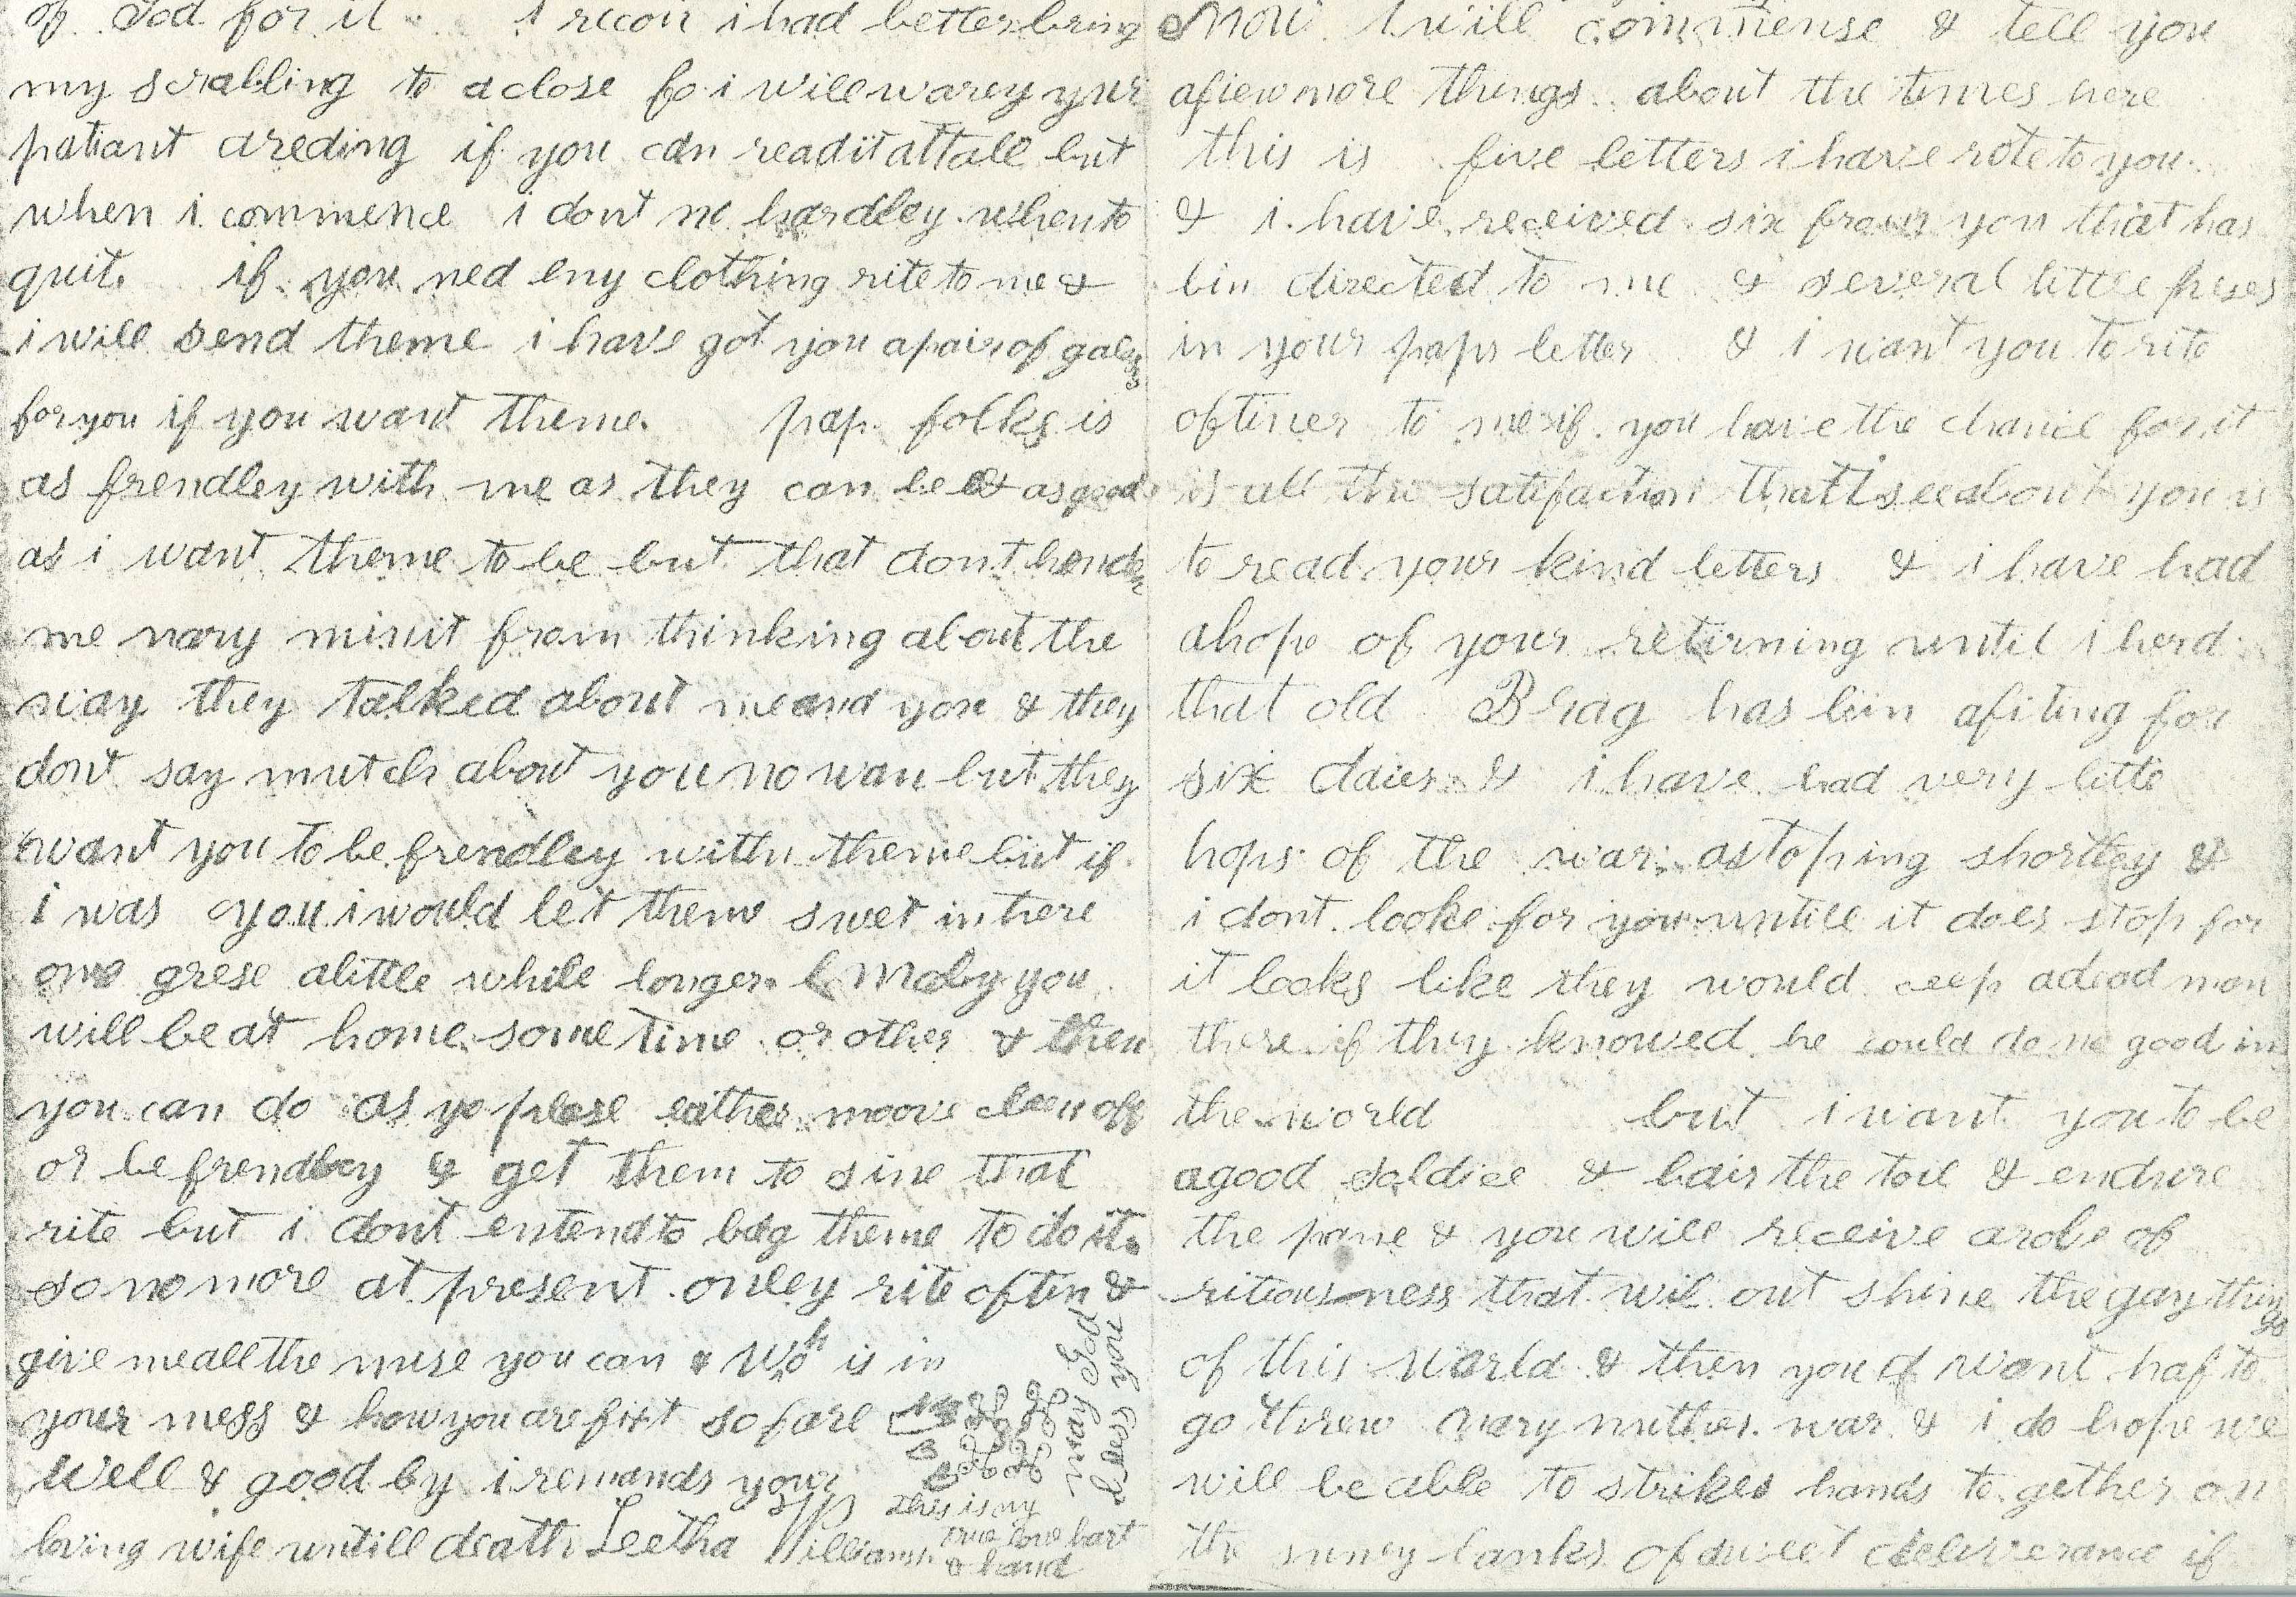 of God for it i recon i had better bring
my scrabling to a close fo i will warey your
patiant areding if you can read it at tall but
when i commence i dont no hardley when to
quit. if you ned eny clothing rite to me &
i will send theme i have got you a pair of
for you if you want theme. pap folks is
as frendley with me as they can be & as good
as i want theme to be but that dont hender
me nary minit from thinking about the
way they talked about me and you & they
dont say mutch about you no wan but they
want you to be frendley with theme but if
i was you i would let them swet in there
one grese alittle while longer. maby you
will be at home some time or other & then
you can do as yo plese eather moove clen off
or be frendley & get them to sine that
rite but i dont entend to beg theme to do it.
so no more at present onley rite often &
give me all the nuse you can & who is in
your mess & how you are fixt so fare
well & good by i remands your
loving wife untill death Leetha Williams
may God
bless you
this is my
true love hart
& hand
Now I will commense & tell you
afiew more things about the times here
this is five letters i have rote to you.
& i have received six from you that has
bin directed to me & several little peses
in your paps letter & i want you to rite
oftiner to me if you have the chance for it
is all the satifaction that I see about you is
to read your kind letters & i have had
ahope of your returning until i herd
that old Brag has bin afiting for
six daies & i have had very litte
hops of the war astoping shortley &
i dont looke for you untill it does stop for
it looks like they would ceep adead man
there if they knowed he could do no good in
the world but i want you to be
agood soldice & bair the toil & endure
the pane & you will receive arobe of
ritiousness that wil out shine the gay things
of this world & then you want haf to
go threw nary nuther war & i do hope we
will be able to strikes hands to gether on
the suney banks of sweet deliverance if